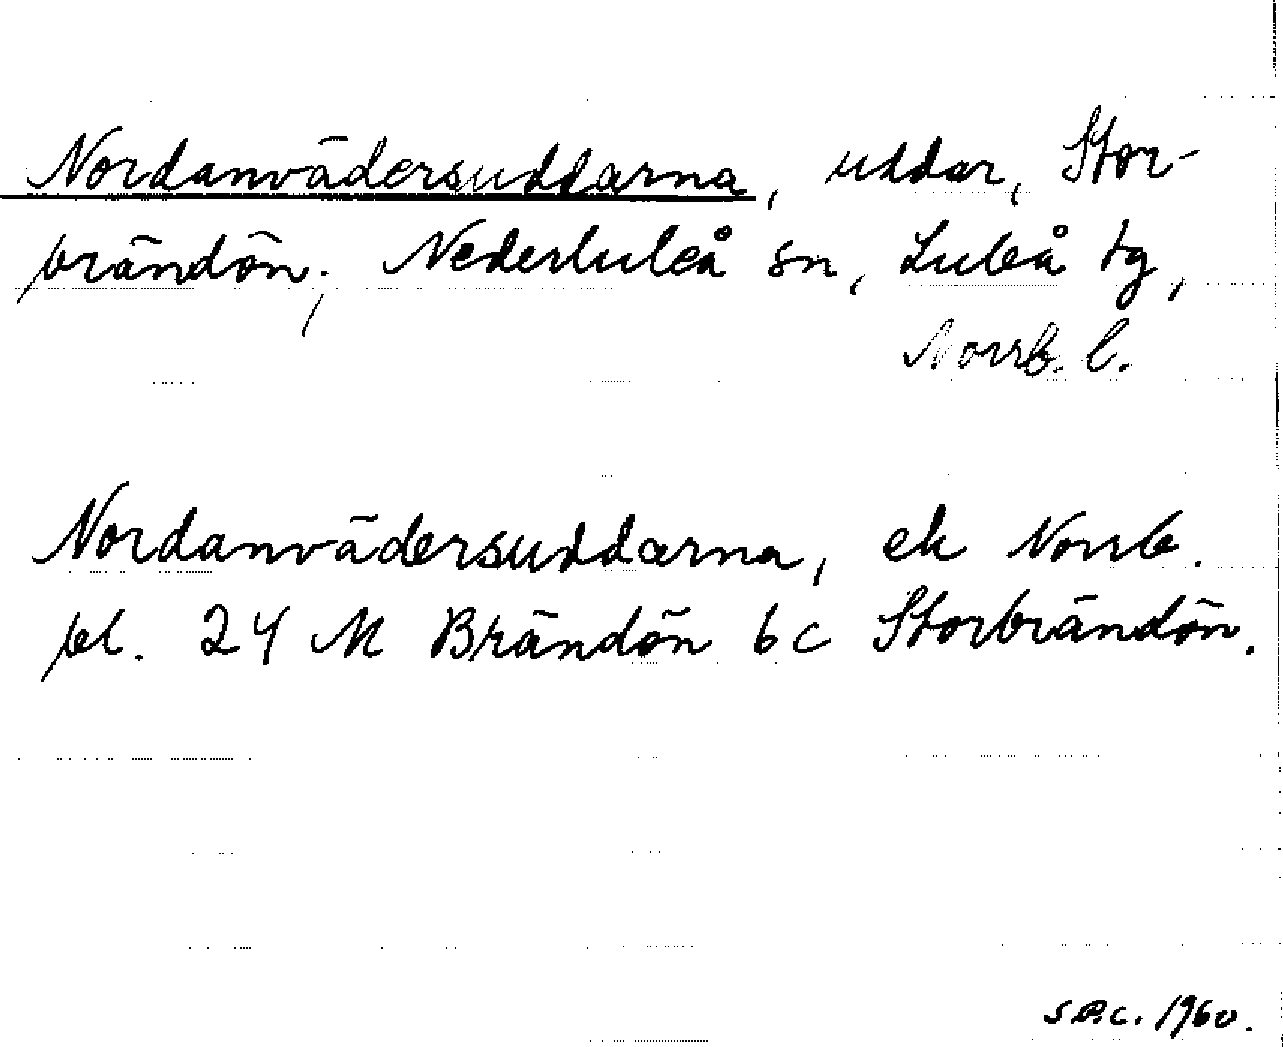 Nordanvädersuddarna, uddar, Stor-
brändön; Nederluleå sn, Luleå tg,
Norrb. l.
Nordanvädersuddarna, ek Norrb.
bl. 24 M Brändön bc Storbrändön.
1960.